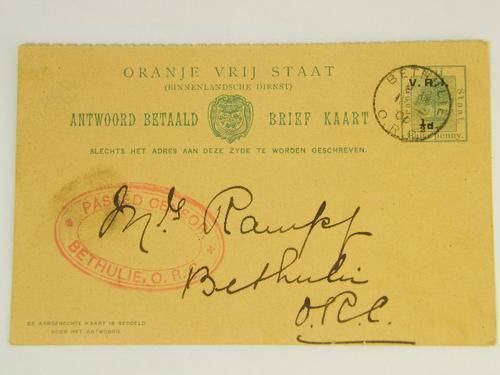 ORANJE VRIJ STAAT
(BINNENLANDSCHE DIENST)
ANTWOORD BETAALD BRIEF KAART
SLECHTS HET ADRES AAN DEZE ZYDE TE WORDEN GESCHREVEN.
BETHULIE
O.R.
V.R.
½d.
Halve penny.
PASSED CENSOR
BETHULIE, O.R.C.
Mrs Rampf
Bethulie
O.R.C.
DE AANGEHECHTE KAART IS BEDOELD
VOOR HET ANTWOORD.